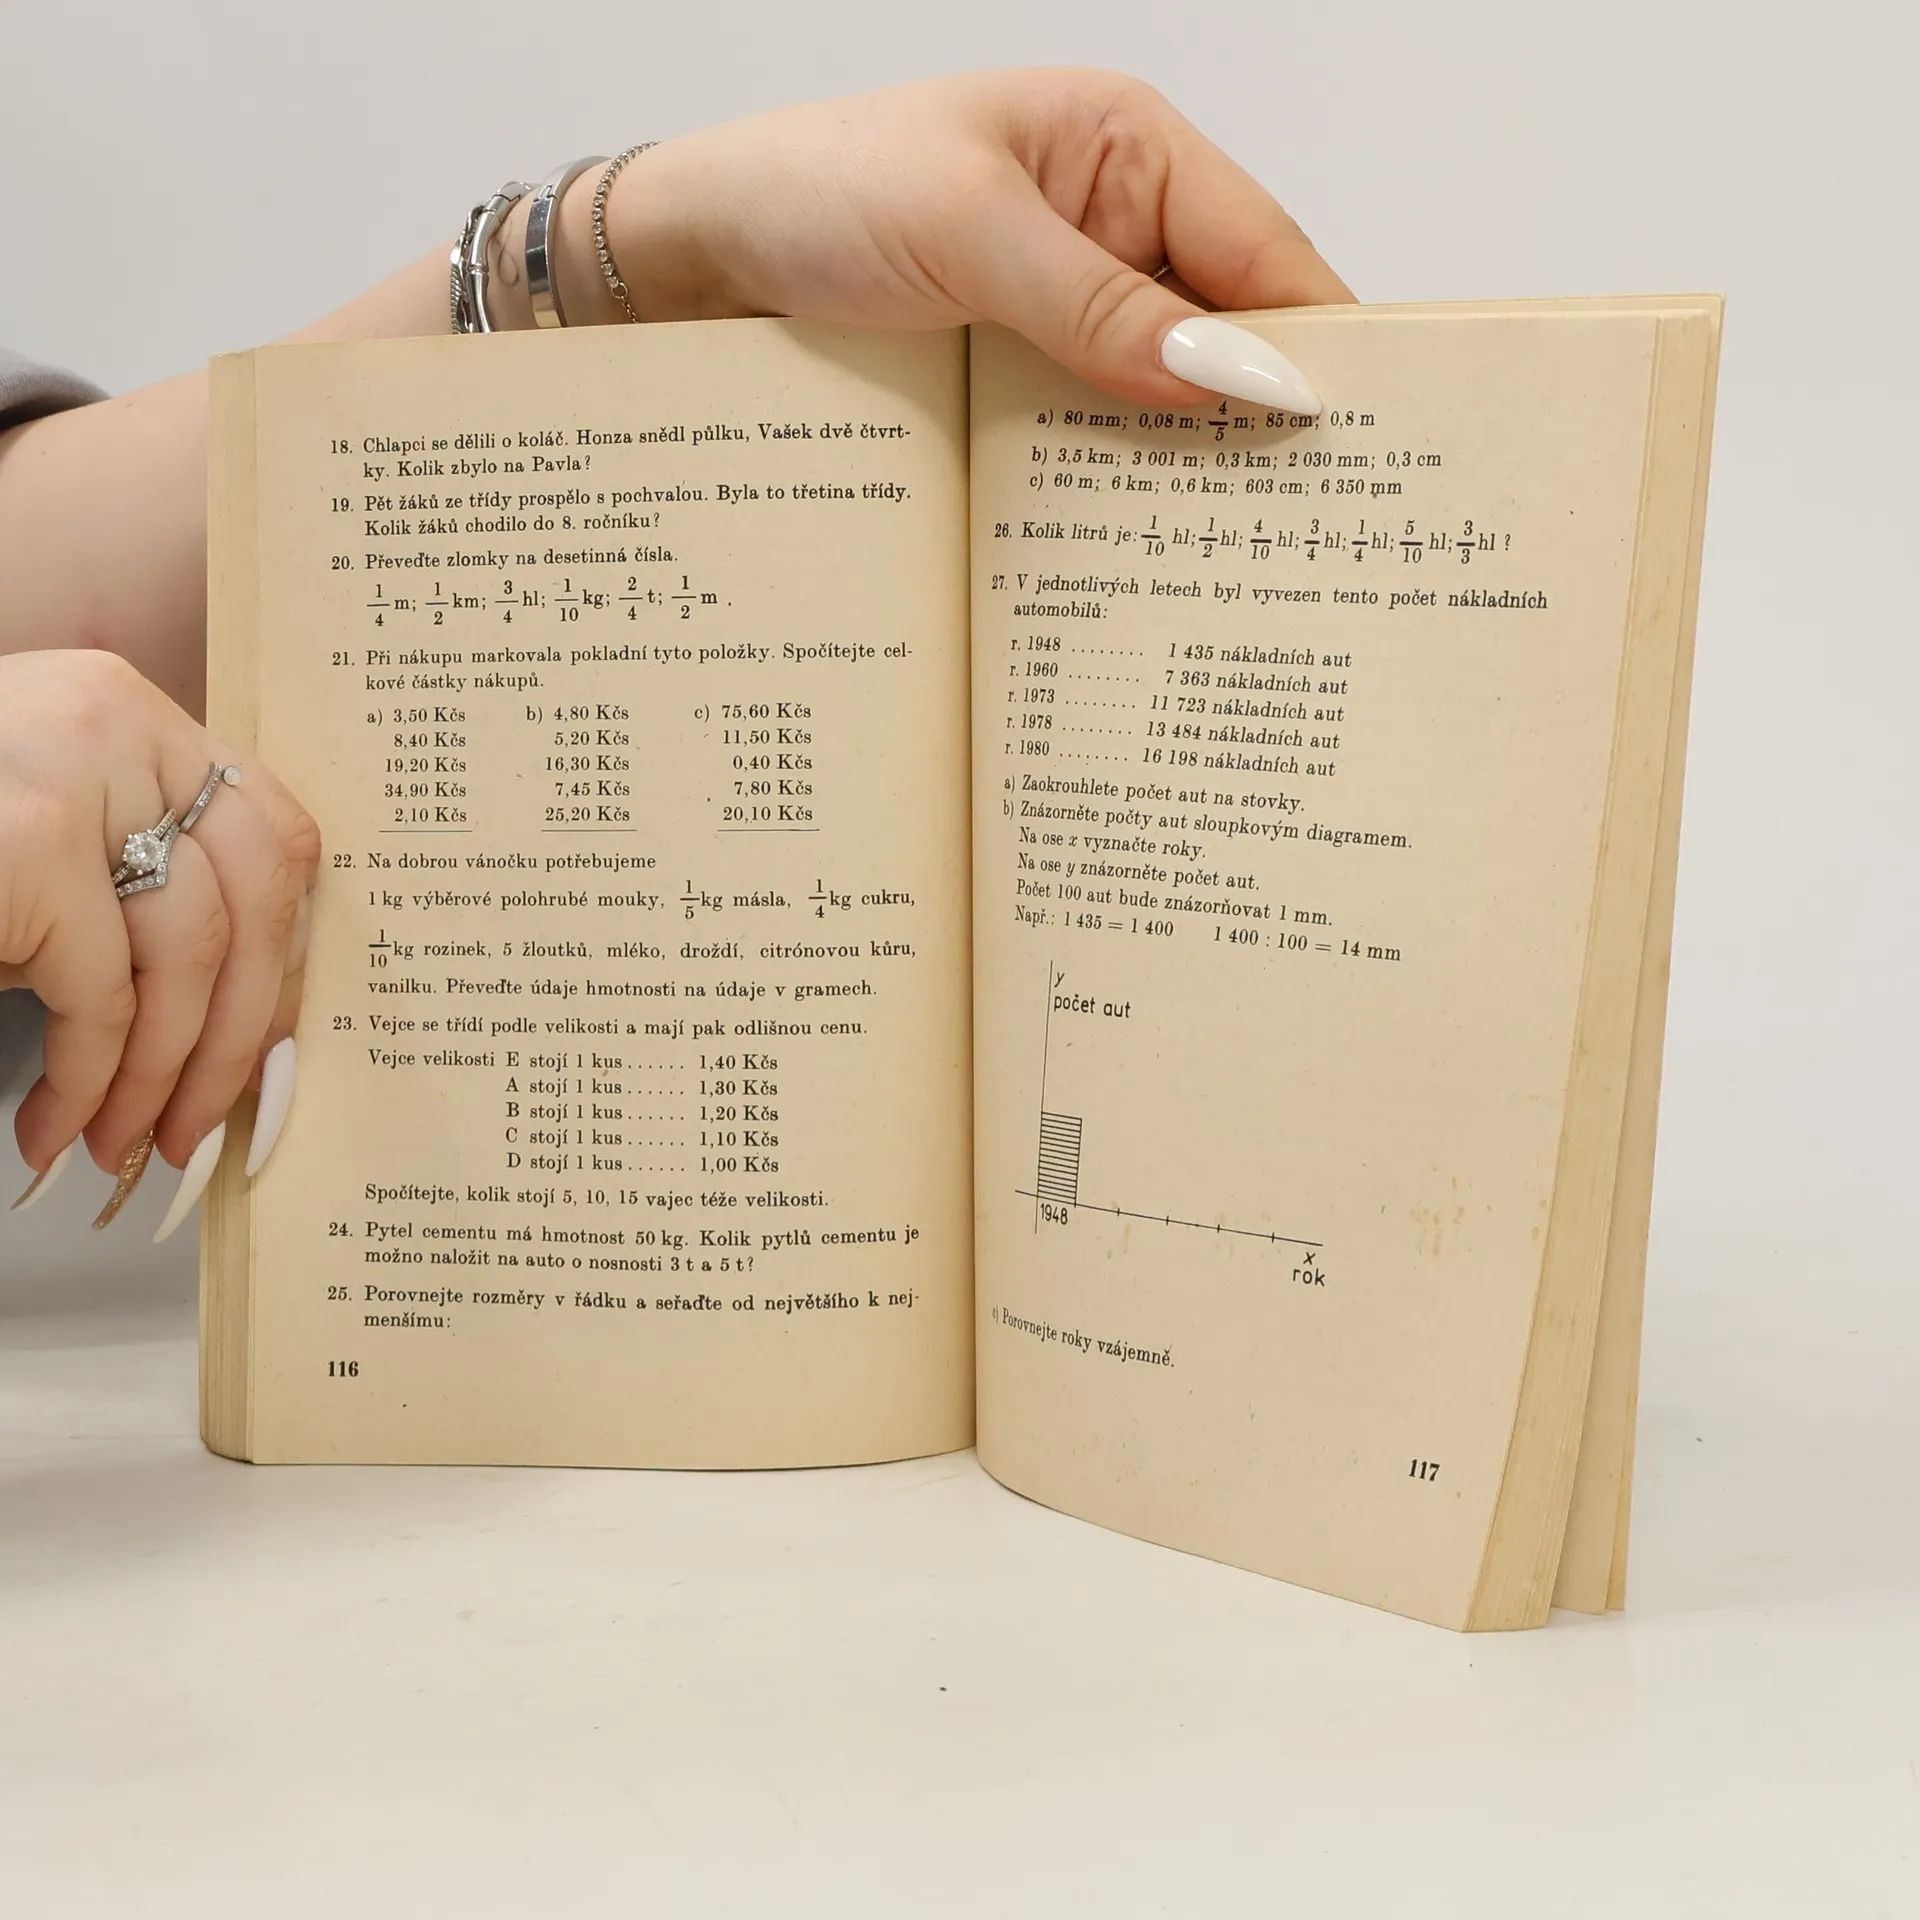 18. Chlapci se dělili o koláč. Honza snědl půlku, Vašek dvě čtvrt-
ky. Kolik zbylo na Pavla?
19. Pět žáků ze třídy prospělo s pochvalou. Byla to třetina třídy.
Kolik žáků chodilo do 8. ročníku?
20. Převeďte zlomky na desetinná čísla.
1/4 m; 1/2 km; 3/4 hl; 1/10 kg; 2/4 t; 1/2 m .
21. Při nákupu markovala pokladní tyto položky. Spočítejte cel-
kové částky nákupů.
a) 3,50 Kčs b) 4,80 Kčs c) 75,60 Kčs
8,40 Kčs 5,20 Kčs 11,50 Kčs
19,20 Kčs 16,30 Kčs 0,40 Kčs
34,90 Kčs 7,45 Kčs 7,80 Kčs
2,10 Kčs 25,20 Kčs 20,10 Kčs
22. Na dobrou vánočku potřebujeme
1 kg výběrové polohrubé mouky, 1/5 kg másla, 1/4 kg cukru,
1/10 kg rozinek, 5 žloutků, mléko, droždí, citrónovou kůru,
vanilku. Převeďte údaje hmotnosti na údaje v gramech.
23. Vejce se třídí podle velikosti a mají pak odlišnou cenu.
Vejce velikosti E stojí 1 kus ...... 1,40 Kčs
A stojí 1 kus ...... 1,30 Kčs
B stojí 1 kus ...... 1,20 Kčs
C stojí 1 kus ...... 1,10 Kčs
D stojí 1 kus ...... 1,00 Kčs
Spočítejte, kolik stojí 5, 10, 15 vajec téže velikosti.
24. Pytel cementu má hmotnost 50 kg. Kolik pytlů cementu je
možno naložit na auto o nosnosti 3 t a 5 t?
25. Porovnejte rozměry v řádku a seřaďte od největšího k nej-
menšímu:
116
a) 80 mm; 0,08 m; 4/5 m; 85 cm; 0,8 m
b) 3,5 km; 3 001 m; 0,3 km; 2 030 mm; 0,3 cm
c) 60 m; 6 km; 0,6 km; 603 cm; 6 350 mm
26. Kolik litrů je: 1/10 hl; 1/2 hl; 4/10 hl; 3/4 hl; 1/4 hl; 5/10 hl; 3/3 hl ?
27. V jednotlivých letech byl vyvezen tento počet nákladních
automobilů:
r. 1948 ........ 1 435 nákladních aut
r. 1960 ........ 7 363 nákladních aut
r. 1973 ........ 11 723 nákladních aut
r. 1978 ........ 13 484 nákladních aut
r. 1980 ........ 16 198 nákladních aut
a) Zaokrouhlete počet aut na stovky.
b) Znázorněte počty aut sloupkovým diagramem.
Na ose x vyznačte roky.
Na ose y znázorněte počet aut.
Počet 100 aut bude znázorňovat 1 mm.
Např.: 1 435 = 1 400 1 400 : 100 = 14 mm
y
počet aut
1948
x
rok
c) Porovnejte roky vzájemně.
117